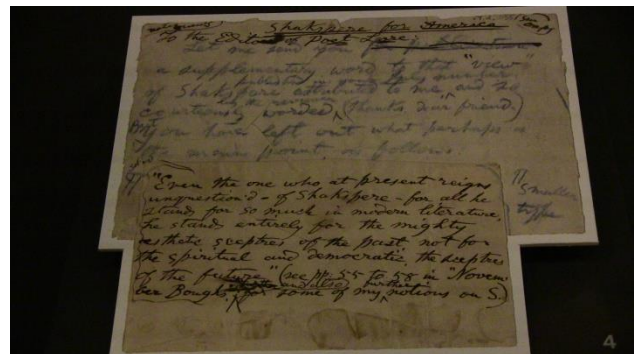 Shakspere for America
To the Editor of Poet Lore:
Let me send you
a supplementary word to that "view"
of Shakspere attributed to me, published in your July number
and so
courteously worded by the reviewer (thanks dear friend.)
But you have left out what perhaps is
the main point, as follows:
"Even the one who at present reigns
unquestion'd – of Shakspere – for all he
stands for so much in modern literature,
he stands entirely for the mighty
esthetic sceptres of the past, not for
the spiritual and democratic, the sceptres
of the future." (see pp: 55 to 58 in "Novem
ber Boughs," and also for some of my further notions on S.)
smaller
type
4